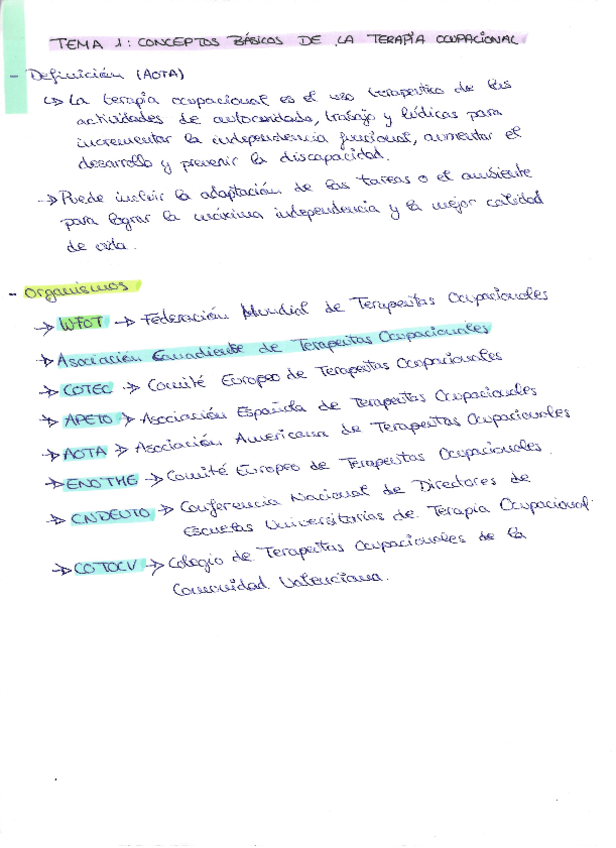 TEMA 1: CONCEPTOS BÁSICOS DE LA TERAPIA OCUPACIONAL
- Definición (AOTA)
↳ La terapia ocupacional es el uso terapeutico de las
actividades de autocuidado, trabajo y lúdicas para
incrementar la independencia funcional, aumentar el
desarrollo y prevenir la discapacidad.
→ Puede incluir la adaptación de las tareas o el ambiente
para lograr la máxima independencia y la mejor calidad
de vida.
- Organismos
→ WFOT → Federación Mundial de Terapeutas Ocupacionales
→ Asociación Canadiense de Terapeutas Ocupacionales
→ COTEC → Comité Europeo de Terapeutas Ocupacionales
→ APETO → Asociación Española de Terapeutas Ocupacionales
→ AOTA → Asociación Americana de Terapeutas Ocupacionales
→ ENOTHE → Comité Europeo de Terapeutas Ocupacionales.
→ CNDEUTO → Conferencia Nacional de Directores de
Escuelas Universitarias de Terapia Ocupacional.
→ COTOCV → Colegio de Terapeutas Ocupacionales de la
Comunidad Valenciana.